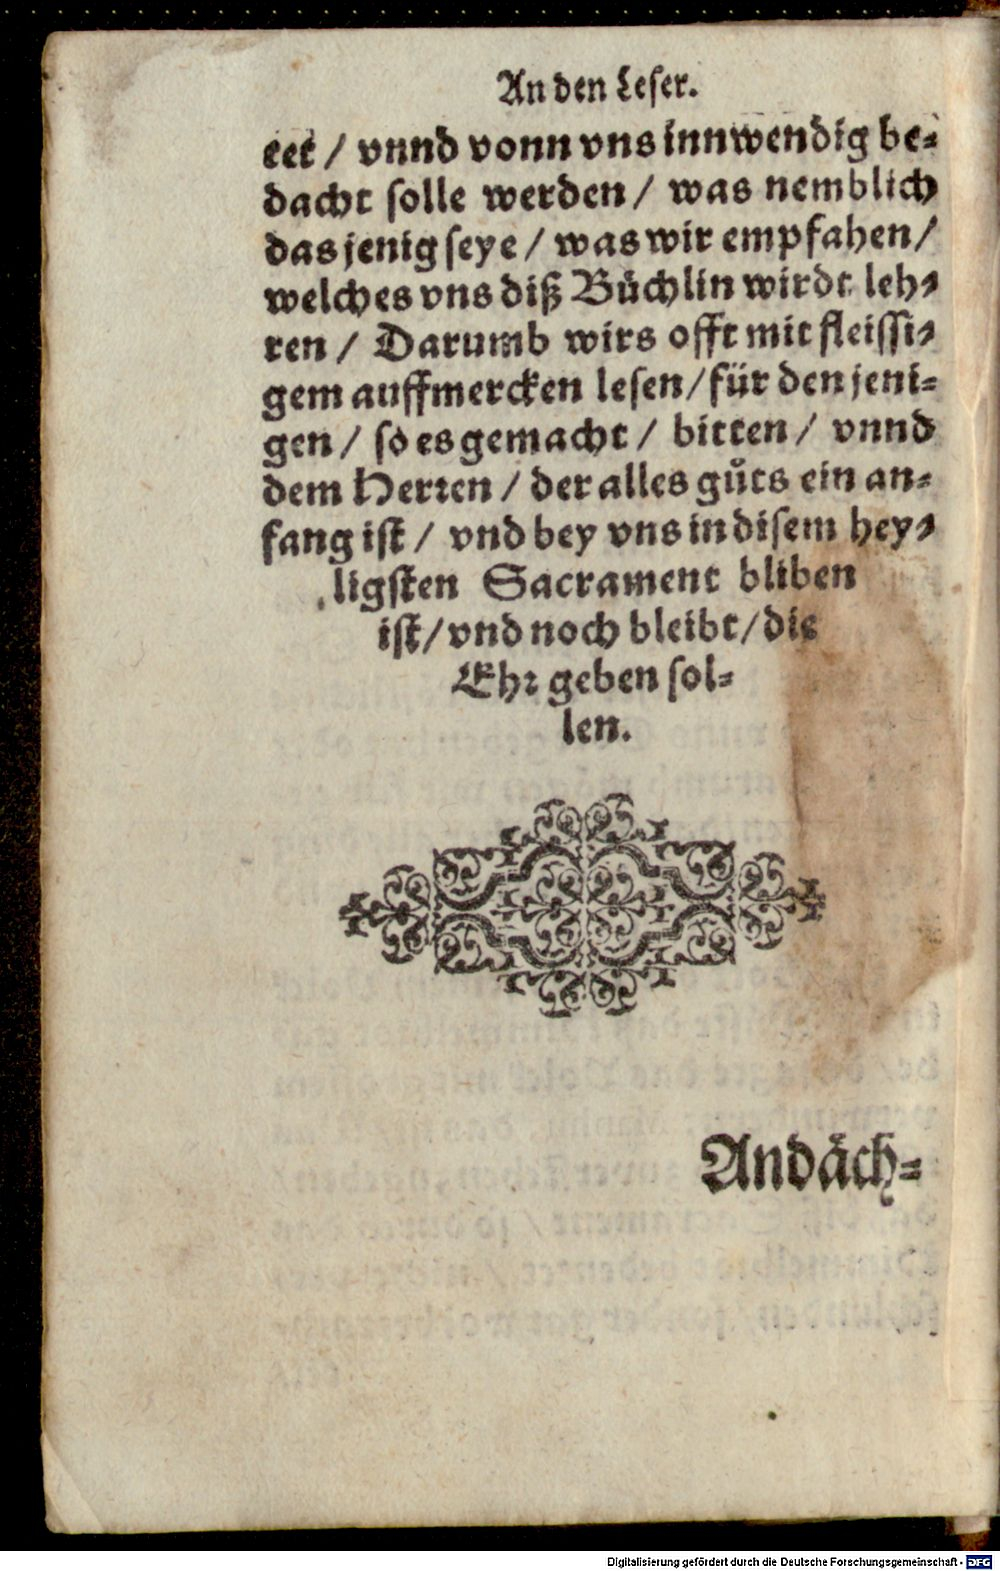 An den Leser.
tet / vnnd vonn vns innwendig be-
dacht solle werden / was nemblich
das jenig seye / was wir empfahen /
welches vns diß Büchlin wirdt leh-
ren / Darumb wirs offt mit fleissi-
gem auffmercken lesen / für den jeni-
gen / so es gemacht / bitten / vnnd
dem Herren / der alles gůts ein an-
fang ist / vnd bey vns in disem hey-
ligsten Sacrament bliben
ist / vnd noch bleibt / die
Ehr geben sol-
len.
Andäch-
Digitalisierung gefördert durch die Deutsche Forschungsgemeinschaft - DFG